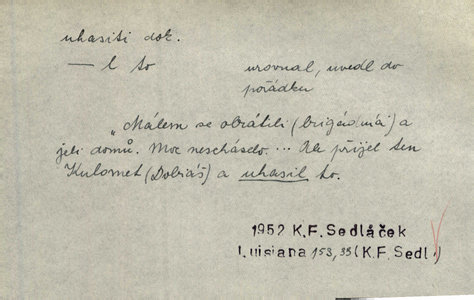 uhasiti dok.
— l to urovnal, uvedl do
pořádku
„Málem se obrátili (brigádníci) a
jeli domů. Moc nescházelo. .. Ale přijel ten
Kulomet (Dobiáš) a uhasil to.
1952 K.F. Sedláček
Luisiana 153, 33 (K.F. Sedl.)